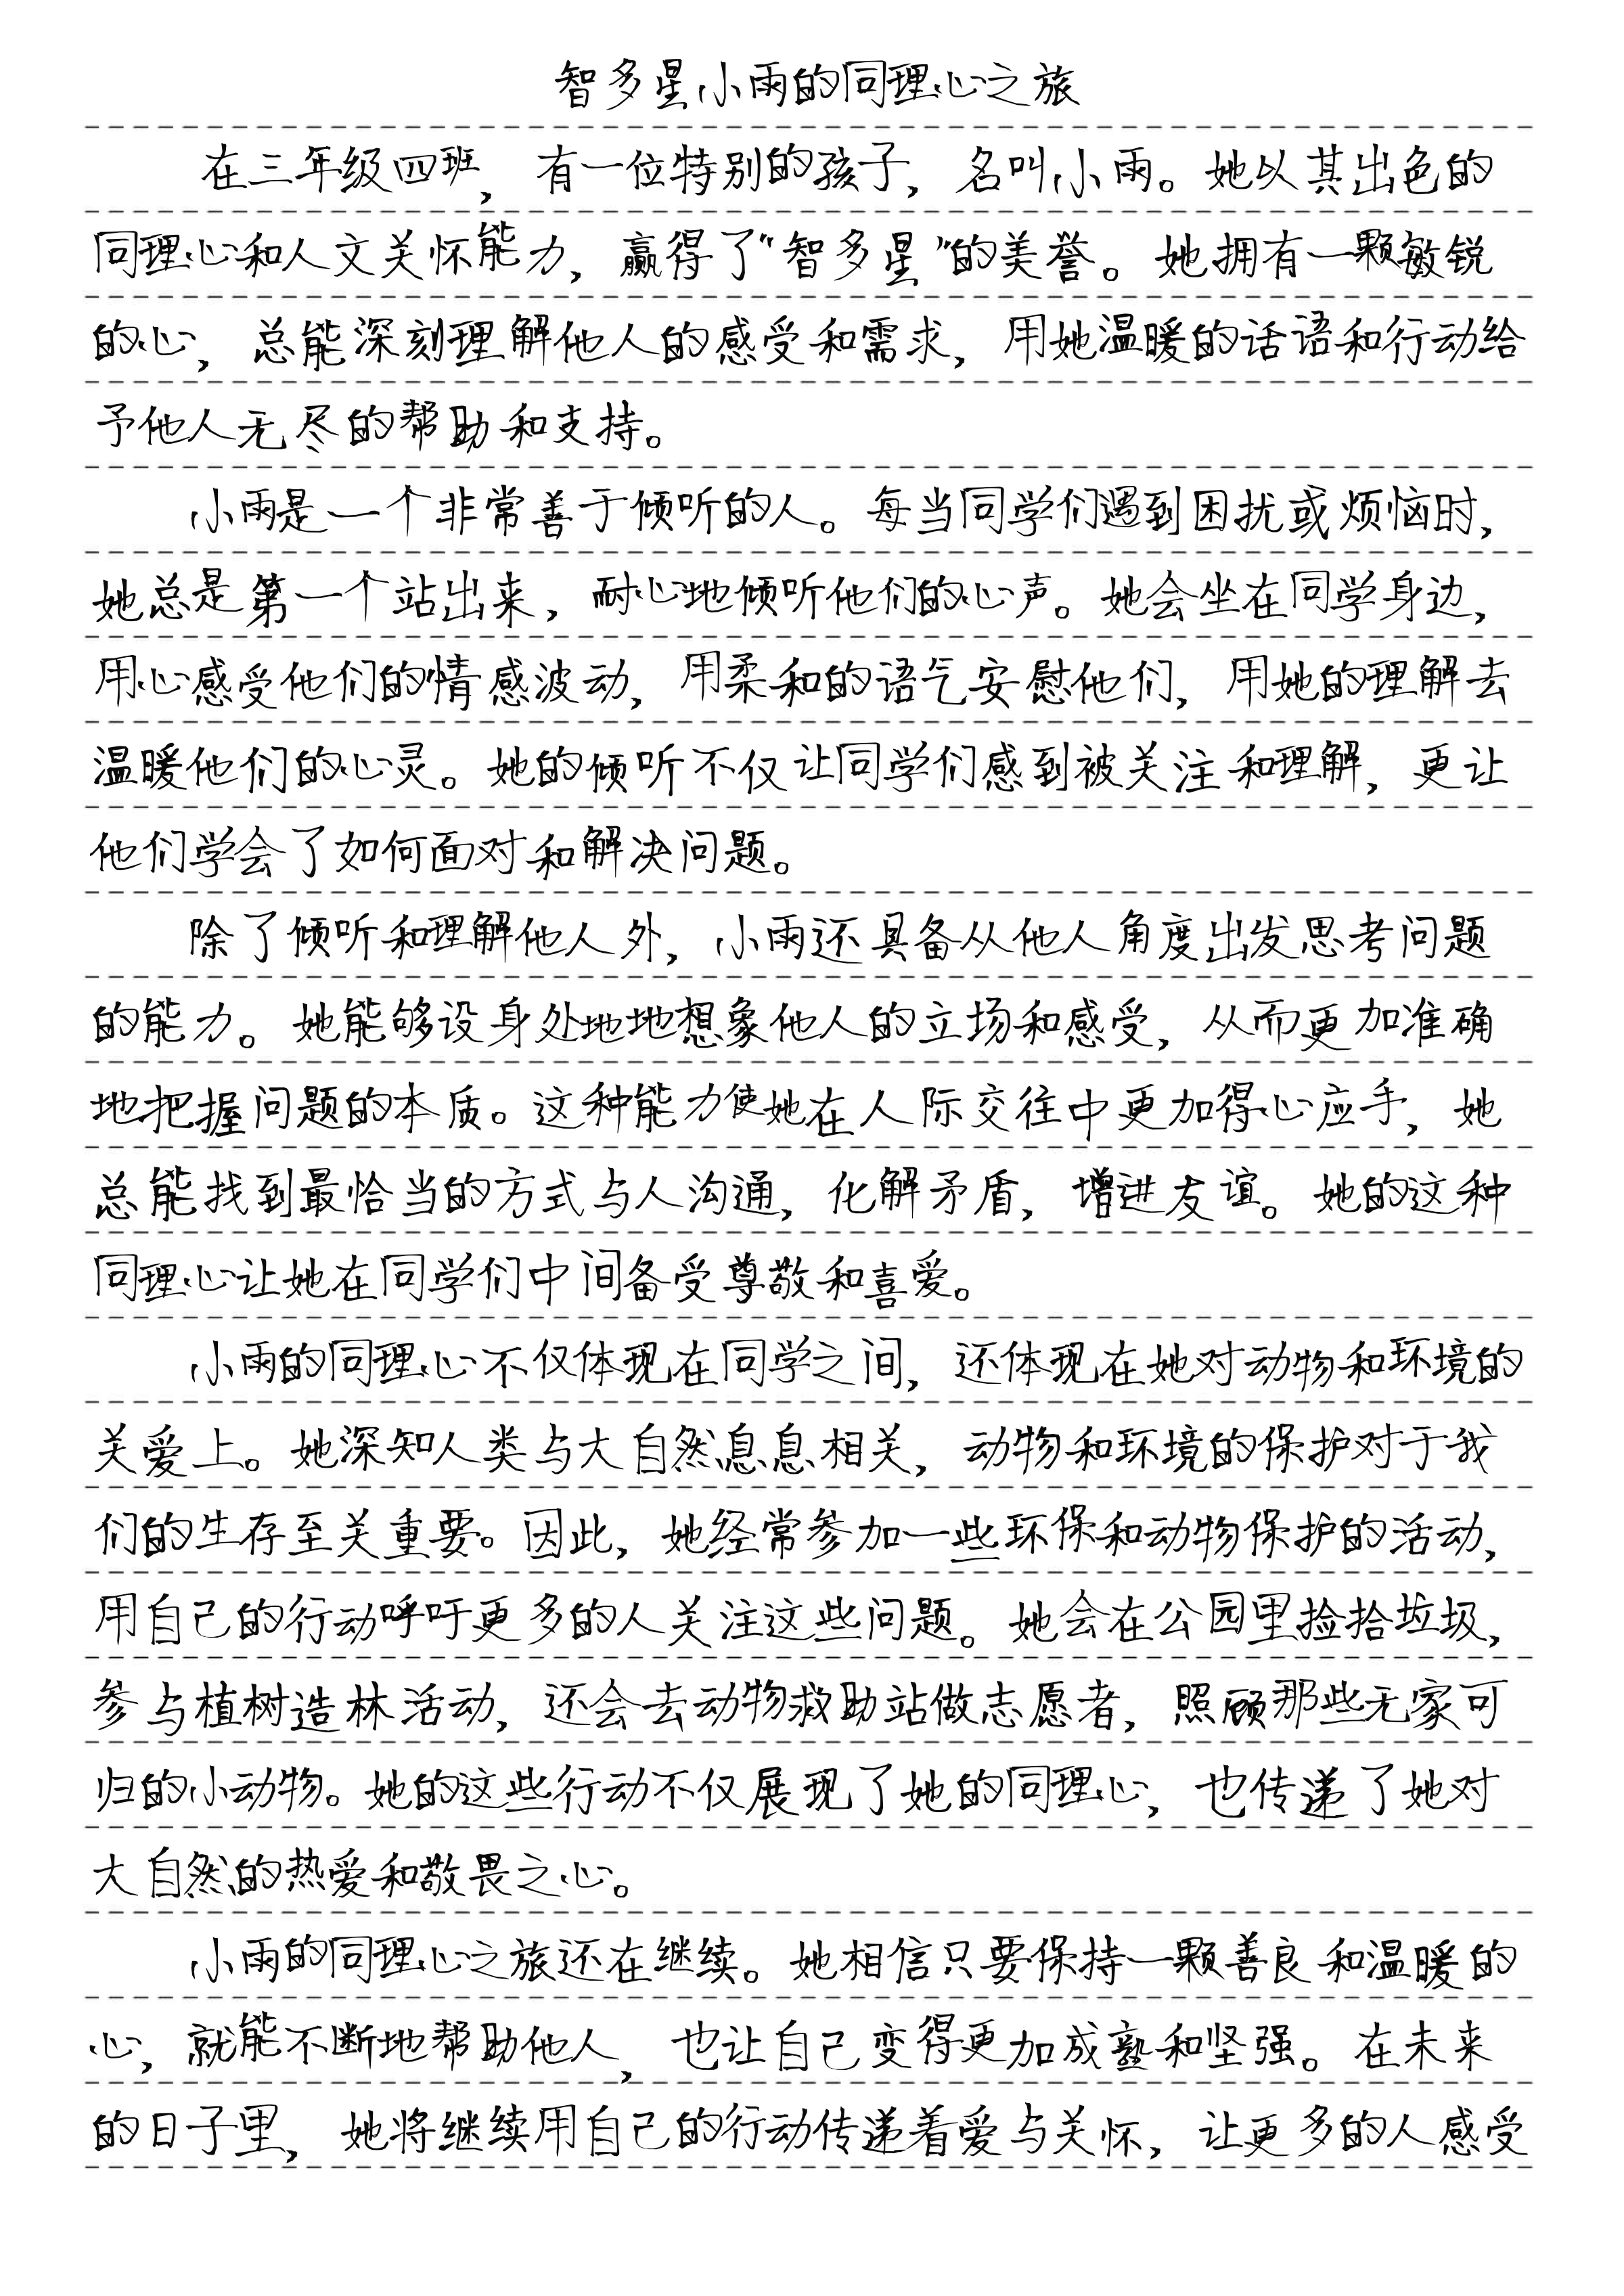 智多星小雨的同理心之旅
在三年级四班，有一位特别的孩子，名叫小雨。她以其出色的
同理心和人文关怀能力，赢得了“智多星”的美誉。她拥有一颗敏锐
的心，总能深刻理解他人的感受和需求，用她温暖的话语和行动给
予他人无尽的帮助和支持。
小雨是一个非常善于倾听的人。每当同学们遇到困扰或烦恼时，
她总是第一个站出来，耐心地倾听他们的心声。她会坐在同学身边，
用心感受他们的情感波动，用柔和的语气安慰他们，用她的理解去
温暖他们的心灵。她的倾听不仅让同学们感到被关注和理解，更让
他们学会了如何面对和解决问题。
除了倾听和理解他人外，小雨还具备从他人角度出发思考问题
的能力。她能够设身处地地想象他人的立场和感受，从而更加准确
地把握问题的本质。这种能力使她在人际交往中更加得心应手，她
总能找到最恰当的方式与人沟通，化解矛盾，增进友谊。她的这种
同理心让她在同学们中间备受尊敬和喜爱。
小雨的同理心不仅体现在同学之间，还体现在她对动物和环境的
关爱上。她深知人类与大自然息息相关，动物和环境的保护对于我
们的生存至关重要。因此，她经常参加一些环保和动物保护的活动，
用自己的行动呼吁更多的人关注这些问题。她会在公园里捡拾垃圾，
参与植树造林活动，还会去动物救助站做志愿者，照顾那些无家可
归的小动物。她的这些行动不仅展现了她的同理心，也传递了她对
大自然的热爱和敬畏之心。
小雨的同理心之旅还在继续。她相信只要保持一颗善良和温暖的
心，就能不断地帮助他人，也让自己变得更加成熟和坚强。在未来
的日子里，她将继续用自己的行动传递着爱与关怀，让更多的人感受